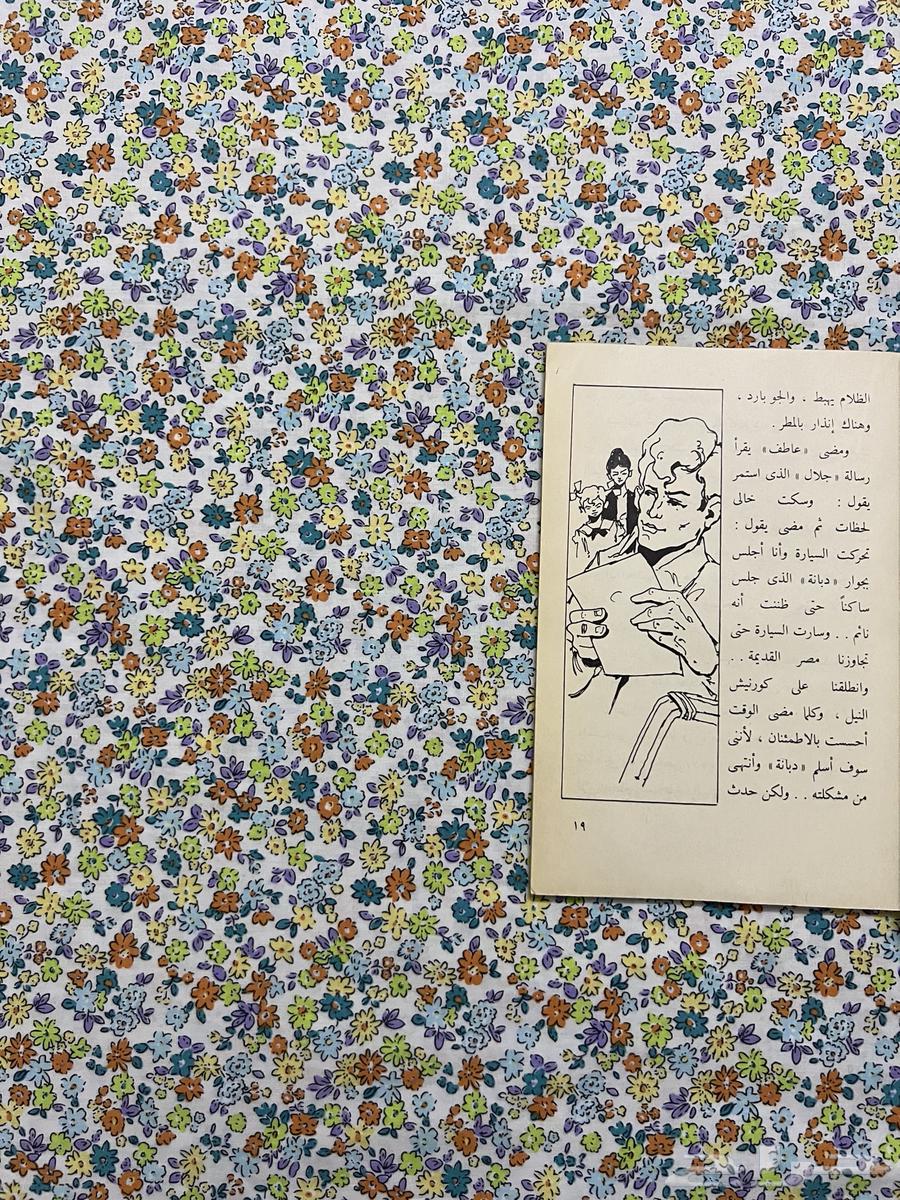 الظلام يهبط . والجو بارد ،
وهناك إنذار بالمطر .
ومضى « عاطف » يقرأ
رسالة « جلال » الذى استمر
يقول : وسكت خالى
لحظات ثم مضى يقول :
تحركت السيارة وأنا أجلس
بجوار « دبانة » الذى جلس
ساكناً حتى ظننت أنه
نائم . . وسارت السيارة حتى
تجاوزنا مصر القديمة . .
وانطلقنا على كورنيش
النيل ، وكلما مضى الوقت
أحسست بالاطمئنان ، لأننى
سوف أسلم « دبانة » وأنتهى
من مشكلته . . ولكن حدث
١٩